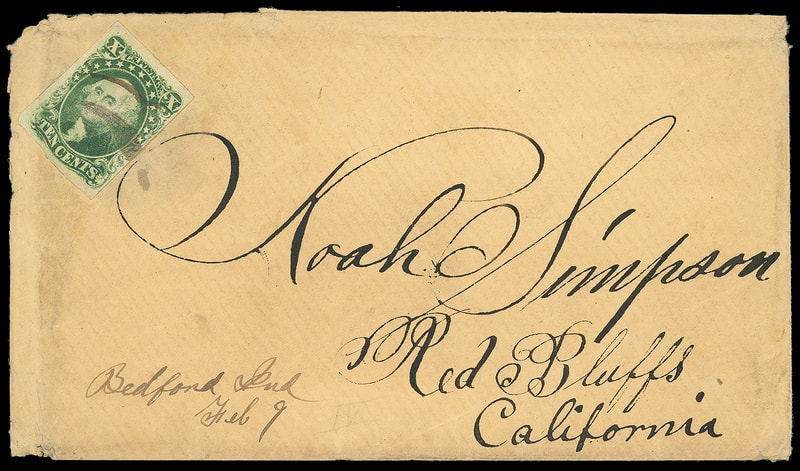 X X
TEN CENTS
Noah Simpson
Red Bluffs
California
Bedford Ind
Feb 9